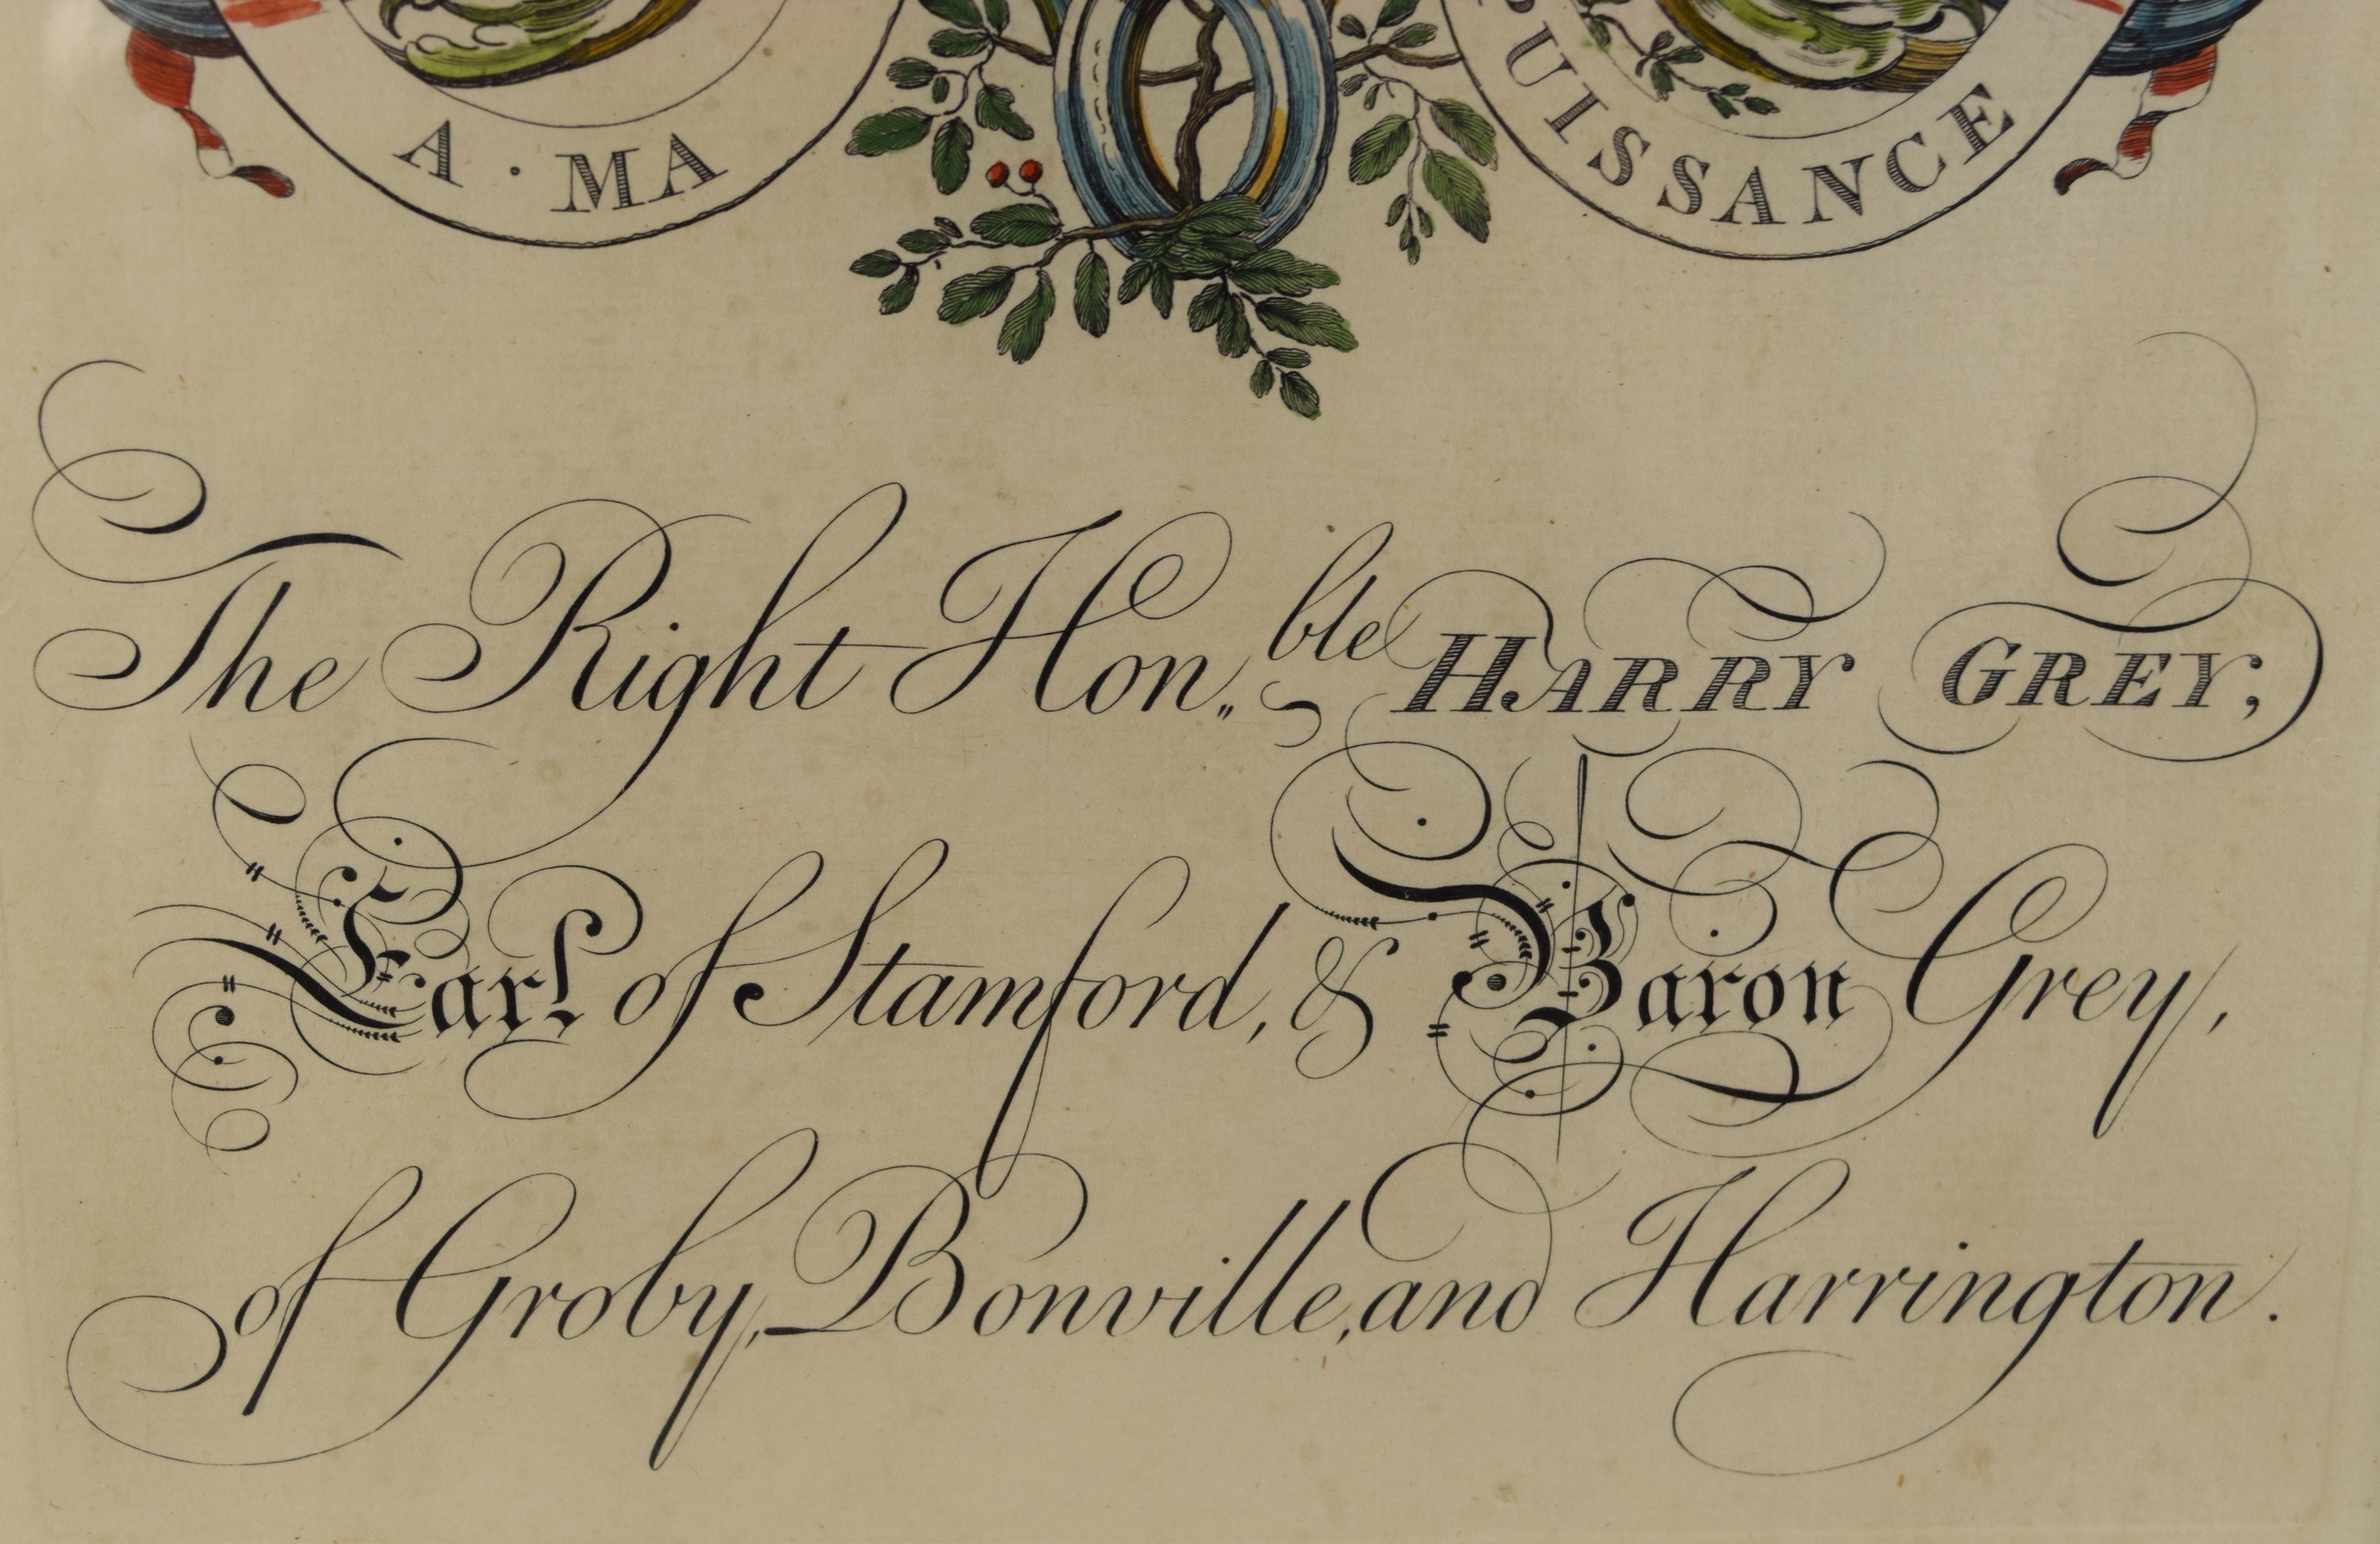 A · MA
PUISSANCE
The Right Hon,,ble HARRY GREY;
Earl of Stamford, & Baron Grey,
of Groby, Bonville, and Harrington.